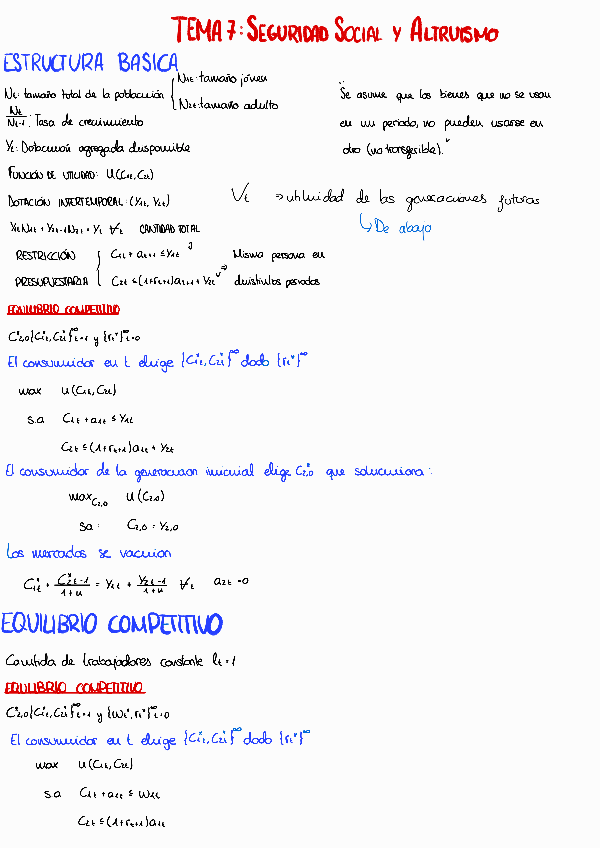 TEMA 7: SEGURIDAD SOCIAL Y ALTRUISMO
ESTRUCTURA BASICA
Nt: tamaño total de la población { N1t: tamaño joven
N2t: tamaño adulto
Nt/Nt-1: Tasa de crecimiento
Yt: Dotación agregada disponible
"Se asume que los bienes que no se usan
en un periodo, no pueden usarse en
otro (no transferible)."
FUNCIÓN DE UTILIDAD: U(C1t, C2t)
DOTACIÓN INTERTEMPORAL: (Y1t, Y2t)
Vt ⇒ utilidad de las generaciones futuras
↳ De abajo
Y1tN1t + Y2t-1N2t = Yt ∀t CANTIDAD TOTAL
RESTRICCIÓN { C1t + a1t ≤ Y1t
PRESUPUESTARIA C2t ≤ (1+rt+1)a1t + Y2t
Misma persona en
distintos periodos
EQUILIBRIO COMPETITIVO
C*2,0 {C*1t, C*2t}∞t=1 y {rt*}∞t=0
El consumidor en t elige {C*1t, C*2t}∞ dado {rt*}∞
max U(C1t, C2t)
s.a C1t + a1t ≤ Y1t
C2t ≤ (1+rt+1)a1t + Y2t
El consumidor de la generación inicial elige C*2,0 que soluciona:
max C2,0 U(C2,0)
sa: C2,0 = Y2,0
Los mercados se vacian
C*1t + C*2t-1/1+n = Y1t + Y2t-1/1+n ∀t a2t = 0
EQUILIBRIO COMPETITIVO
Cantida de trabajadores constante lt = 1
EQUILIBRIO COMPETITIVO
C*2,0 {C*1t, C*2t}∞t=1 y {wt*, rt*}∞t=0
El consumidor en t elige {C*1t, C*2t}∞ dado {rt*}∞
max U(C1t, C2t)
s.a C1t + a1t ≤ w1t
C2t ≤ (1+rt+1)a1t